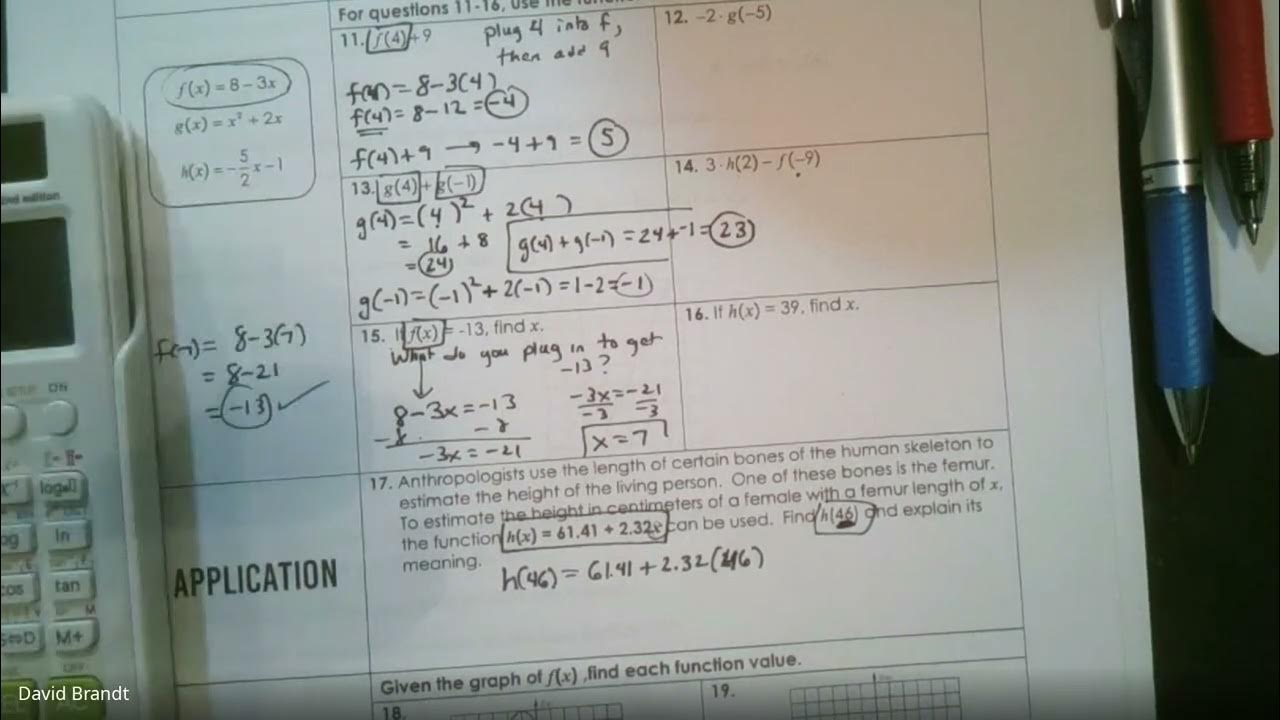 For questions 11-16, use the
11. f(4) + 9
plug 4 into f,
then add 9
f(4) = 8 - 3(4)
f(4) = 8 - 12 = -4
f(4) + 9 → -4 + 9 = 5
12. -2 · g(-5)
f(x) = 8 - 3x
g(x) = x² + 2x
h(x) = -5/2 x - 1
13. g(4) + g(-1)
g(4) = (4)² + 2(4)
= 16 + 8
= 24
g(4) + g(-1) = 24 + -1 = 23
g(-1) = (-1)² + 2(-1) = 1 - 2 = -1
14. 3 · h(2) - f(-9)
15. If f(x) = -13, find x.
What do you plug in to get
-13?
8 - 3x = -13
-8 -8
-3x = -21
-3x = -21
-3 -3
x = 7
f(7) = 8 - 3(7)
= 8 - 21
= -13 ✓
16. If h(x) = 39, find x.
APPLICATION
17. Anthropologists use the length of certain bones of the human skeleton to
estimate the height of the living person. One of these bones is the femur.
To estimate the height in centimeters of a female with a femur length of x,
the function h(x) = 61.41 + 2.32x can be used. Find h(46) and explain its
meaning.
h(46) = 61.41 + 2.32(46)
Given the graph of f(x) ,find each function value.
18.
19.
DN
log
ln
tan
S⇔D
M+
David Brandt